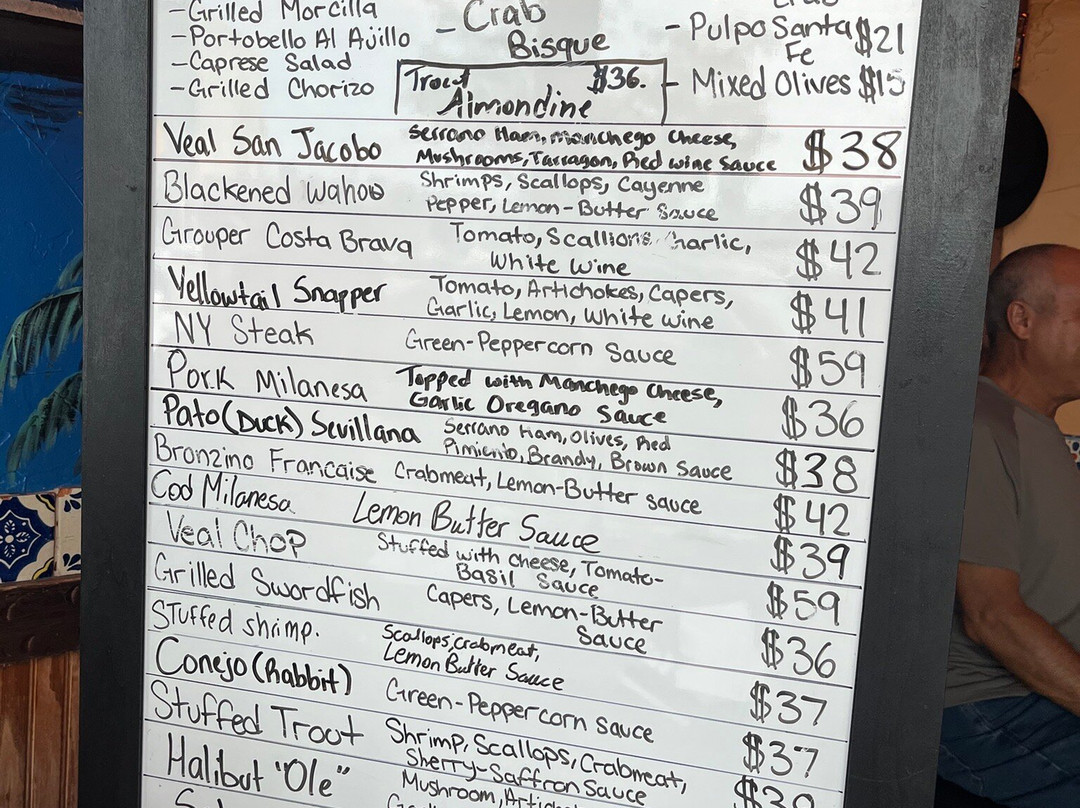 -Grilled Morcilla
-Portobello Al Ajillo
-Caprese Salad
-Grilled Chorizo
- Crab
Bisque
Trout $36.
Almondine
- Pulpo Santa $21
Fe
- Mixed Olives $15
Veal San Jacobo Serrano Ham, manchego Cheese, $38
Mushrooms, Tarragon, Red wine Sauce
Blackened Wahoo Shrimps, Scallops, Cayenne $39
Pepper, Lemon-Butter Sauce
Grouper Costa Brava Tomato, Scallions, Garlic, $42
White Wine
Yellowtail Snapper Tomato, Artichokes, Capers, $41
Garlic, Lemon, White wine
NY Steak Green-Peppercorn Sauce $59
Pork Milanesa Topped with Manchego Cheese, $36
Garlic Oregano Sauce
Pato (Duck) Sevillana Serrano Ham, Olives, Red $38
Pimiento, Brandy, Brown Sauce
Bronzino Francaise Crabmeat, Lemon-Butter sauce $42
Cod Milanesa Lemon Butter Sauce $39
Veal Chop Stuffed with cheese, Tomato- $59
Basil Sauce
Grilled Swordfish Capers, Lemon-Butter $36
Sauce
Stuffed shrimp. Scallops, crabmeat, $37
Lemon Butter Sauce
Conejo (Rabbit) Green-Peppercorn Sauce $37
Stuffed Trout Shrimp, Scallops, Crabmeat,
Sherry-Saffron Sauce
Halibut "Ole" Mushroom,